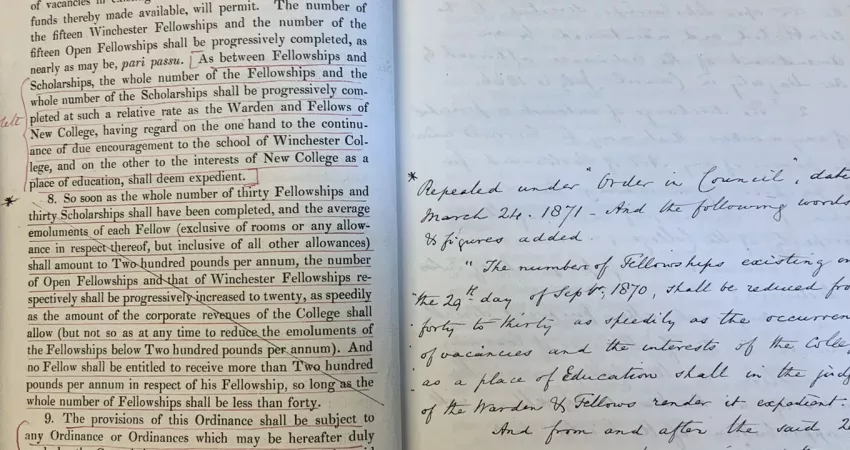 of vacancies in existing
funds thereby made available, will permit. The number of
the fifteen Winchester Fellowships and the number of the
fifteen Open Fellowships shall be progressively completed, as
nearly as may be, pari passu. [As between Fellowships and
Scholarships, the whole number of the Fellowships and the
whole number of the Scholarships shall be progressively com-
pleted at such a relative rate as the Warden and Fellows of
New College, having regard on the one hand to the continu-
ance of due encouragement to the school of Winchester Col-
lege, and on the other to the interests of New College as a
place of education, shall deem expedient.]
* 8. So soon as the whole number of thirty Fellowships and
thirty Scholarships shall have been completed, and the average
emoluments of each Fellow (exclusive of rooms or any allow-
ance in respect thereof, but inclusive of all other allowances)
shall amount to Two hundred pounds per annum, the number
of Open Fellowships and that of Winchester Fellowships re-
spectively shall be progressively increased to twenty, as speedily
as the amount of the corporate revenues of the College shall
allow (but not so as at any time to reduce the emoluments of
the Fellowships below Two hundred pounds per annum). And
no Fellow shall be entitled to receive more than Two hundred
pounds per annum in respect of his Fellowship, so long as the
whole number of Fellowships shall be less than forty.
9. The provisions of this Ordinance shall be subject to
any Ordinance or Ordinances which may be hereafter duly
* Repealed under "Order in Council", date
March 24. 1871 - And the following words
& figures added.
"The number of Fellowships existing on
"the 29th day of Septbr, 1870, shall be reduced fro
"forty to thirty as speedily as the occurren
"of vacancies and the interests of the Colleg
"as a place of Education shall in the judg
of the Warden & Fellows render it expedient.
And from and after the said 2